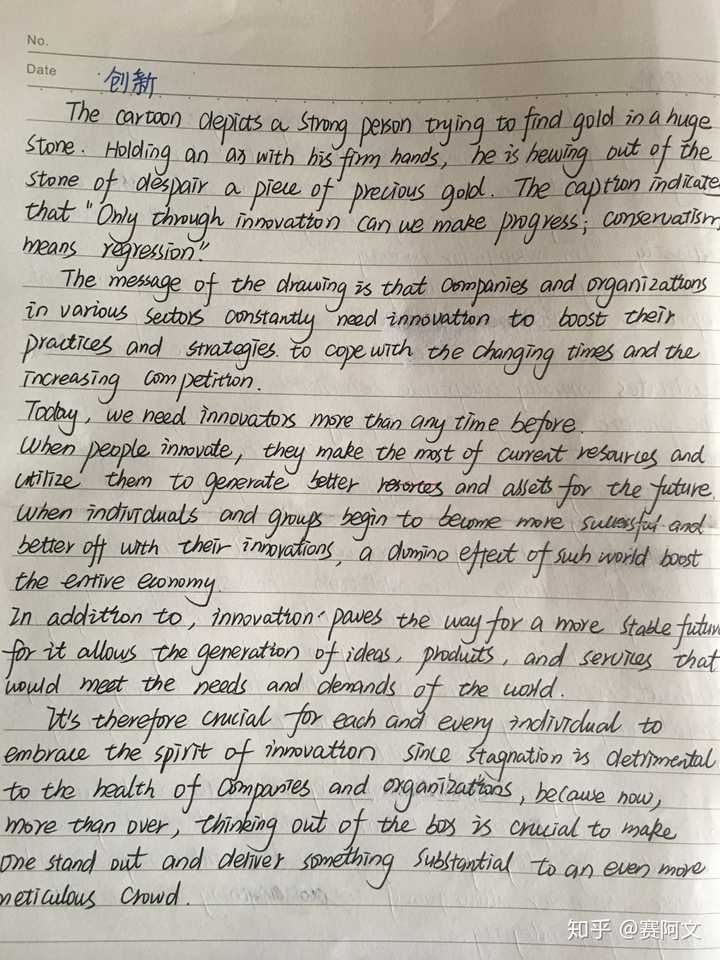 No.
Date 创新
The cartoon depicts a strong person trying to find gold in a huge
stone. Holding an ax with his firm hands, he is hewing out of the
stone of despair a piece of precious gold. The caption indicate
that "Only through innovation can we make progress; conservatism
means regression."
The message of the drawing is that companies and organizations
in various sectors constantly need innovation to boost their
practices and strategies to cope with the changing times and the
increasing competition.
Today, we need innovators more than any time before.
When people innovate, they make the most of current resources and
utilize them to generate better resorces and assets for the future.
When individuals and groups begin to become more successful and
better off with their innovations, a dumino effect of such world boost
the entire economy.
In addition to, innovation paves the way for a more stable future
for it allows the generation of ideas, products, and services that
would meet the needs and demands of the world.
It's therefore crucial for each and every individual to
embrace the spirit of innovation since stagnation is detrimental
to the health of companies and organizations, because now,
more than over, thinking out of the box is crucial to make
one stand out and deliver something substantial to an even more
meticulous crowd.
知乎 @赛阿文